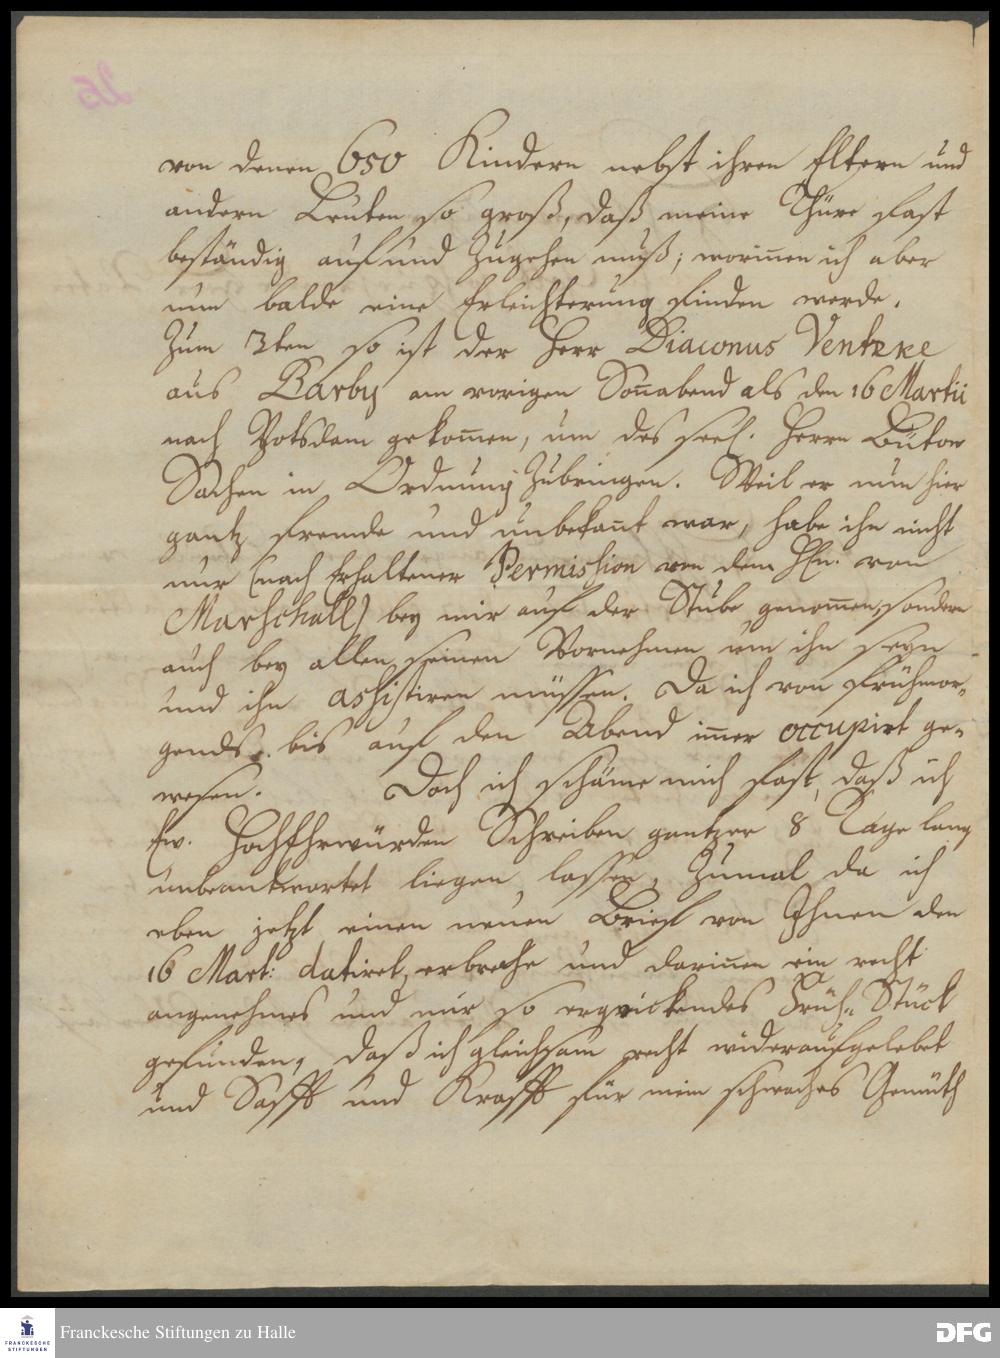 von denen 650 Kindern nebst ihren Eltern und
andern Leuten so groß, daß meine Thüre fast
beständig auf und zugehen muß; worinnen ich aber
nun balde eine Erleichterung finden werde.
Zum 3ten so ist der Herr Diaconus Ventzke
aus Barby am vorigen Soñabend als den 16 Martii
nach Potsdam gekom̃en, um des seel. Herrn Bütow
Sachen in Ordnung zubringen. Weil er nun hier
gantz fremde und unbekañt war, habe ihn nicht
nur (nach Erhaltener Permission von dem Hn. von
Marschall) bey mir auf der Stube genom̃en, sondern
auch bey allen seinen Vornehmen um ihn seyn
und ihn assistiren müssen. Da ich von frühmor„
gends bis auf den Abend im̃er occupirt ge„
wesen. Doch ich schäme mich fast, daß ich
Ew. HochEhrwürden Schreiben gantzer 8 Tage lang
unbeantwortet liegen lassen, zumal da ich
eben jetzt einen neuen Brief von Ihnen den
16 Mart: datiret, erbrache und darinnen ein recht
angenehmes und mir so erqvickendes Früh„Stück
gefunden, daß ich gleichsam recht wideraufgelebet
und Safft und Krafft für mein schwaches Gemüth
Franckesche Stiftungen zu Halle
FRANCKESCHE
STIFTUNGEN
DFG